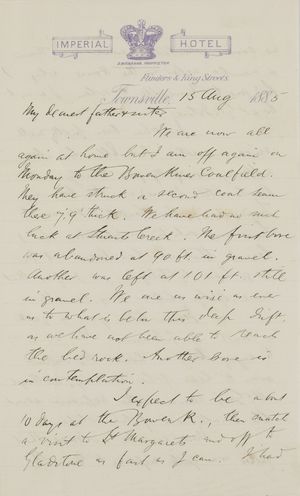 IMPERIAL HOTEL
PROPRIETOR
Flinders & King Streets
Townsville, 15 Aug 1885
My dearest father & sister
We are now all
again at home but I am off again on
Monday to the Bowen River Coalfield.
They have struck a second coal seam
there 7'9 thick. We have had no such
luck at Stuarts Creek. The first bore
was abandoned at 90 ft. in gravel.
Another was left at 101 ft. still
in gravel. We are as wise as ever
as to what is below this deep drift,
as we have not been able to reach
the bed rock. Another bore is
in contemplation.
I expect to be about
10 days at the Bowen R., then snatch
a visit to St Margarets and off to
Gladstone as fast as I can. I had